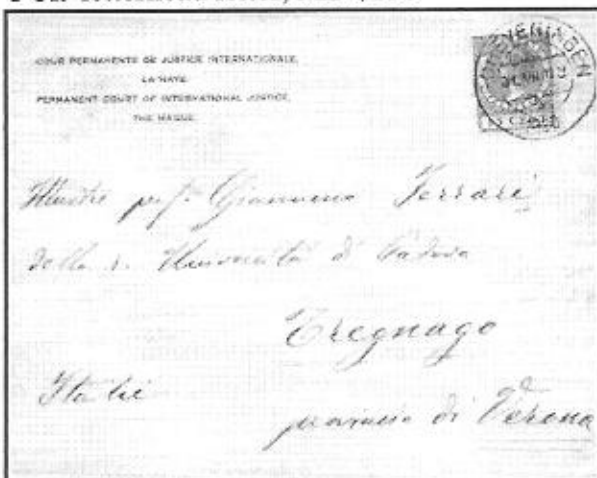 COUR PERMANENTE DE JUSTICE INTERNATIONALE,
LA HAYE.
PERMANENT COURT OF INTERNATIONAL JUSTICE,
THE HAGUE.
Illustre prof. Ferrari
della r. Università di Padova
Tregnago
Italie
provincia di Verona